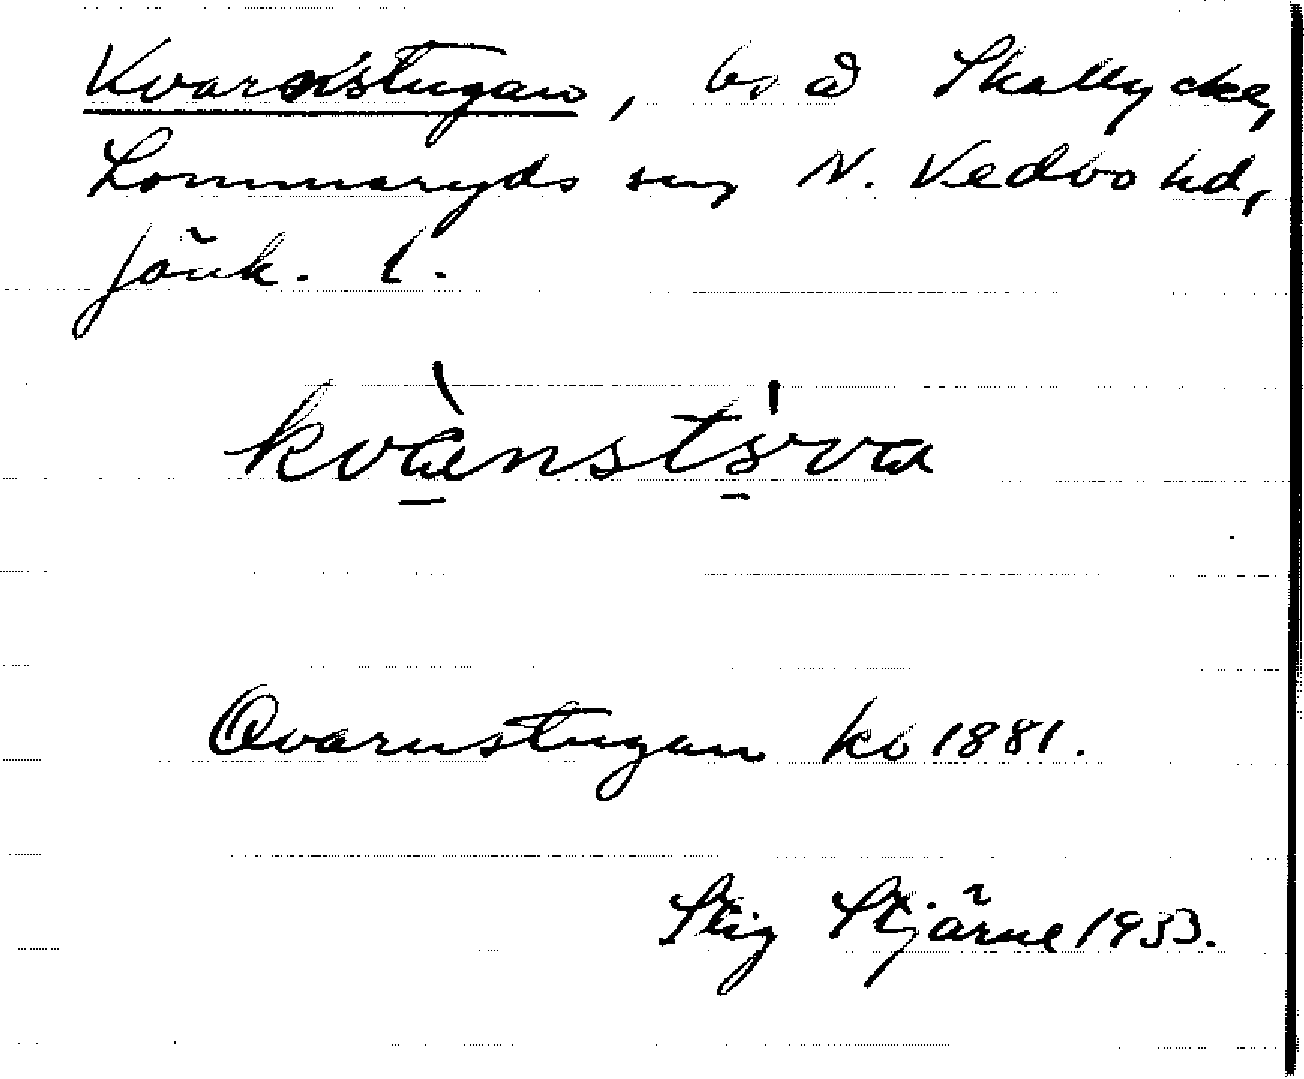 Kvarnstugan, bs å Skallycke,
Lommaryds sn, N. Vedbo hd,
Jönk. l.
kvànstúva
Qvarnstugan kb 1881.
Stig Stjärne 1933.